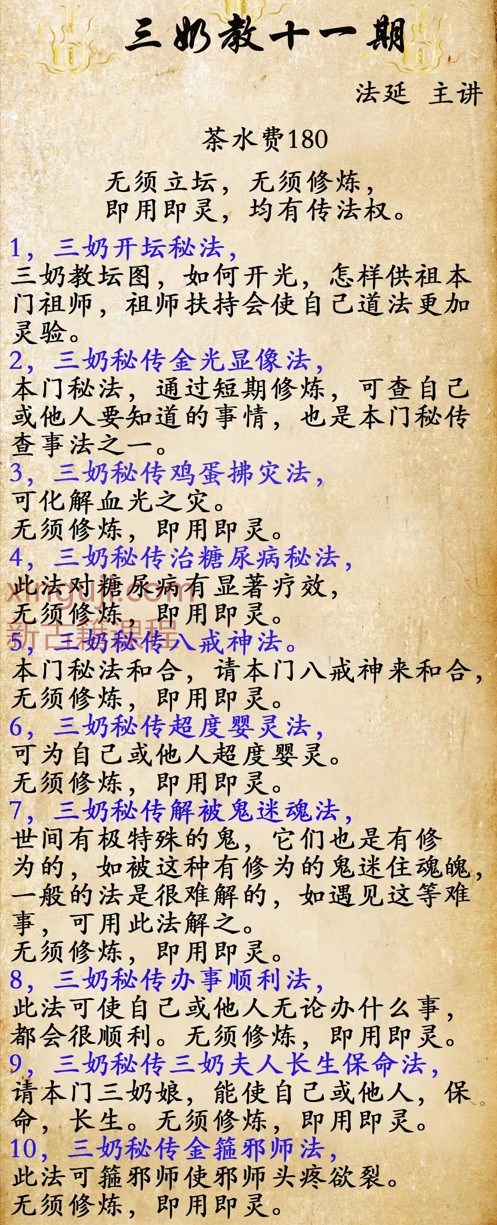 三奶教十一期
法延 主讲
茶水费180
无须立坛，无须修炼，
即用即灵，均有传法权。
1，三奶开坛秘法，
三奶教坛图，如何开光，怎样供祖本
门祖师，祖师扶持会使自己道法更加
灵验。
2，三奶秘传金光显像法，
本门秘法，通过短期修炼，可查自己
或他人要知道的事情，也是本门秘传
查事法之一。
3，三奶秘传鸡蛋拂灾法，
可化解血光之灾。
无须修炼，即用即灵。
4，三奶秘传治糖尿病秘法，
此法对糖尿病有显著疗效，
无须修炼，即用即灵。
xinguji.com
新古籍课程
5，三奶秘传八戒神法。
本门秘法和合，请本门八戒神来和合，
无须修炼，即用即灵。
6，三奶秘传超度婴灵法，
可为自己或他人超度婴灵。
无须修炼，即用即灵。
7，三奶秘传解被鬼迷魂法，
世间有极特殊的鬼，它们也是有修
为的，如被这种有修为的鬼迷住魂魄，
一般的法是很难解的，如遇见这等难
事，可用此法解之。
无须修炼，即用即灵。
8，三奶秘传办事顺利法，
此法可使自己或他人无论办什么事，
都会很顺利。无须修炼，即用即灵。
9，三奶秘传三奶夫人长生保命法，
请本门三奶娘，能使自己或他人，保
命，长生。无须修炼，即用即灵。
10，三奶秘传金箍邪师法，
此法可箍邪师使邪师头疼欲裂。
无须修炼，即用即灵。